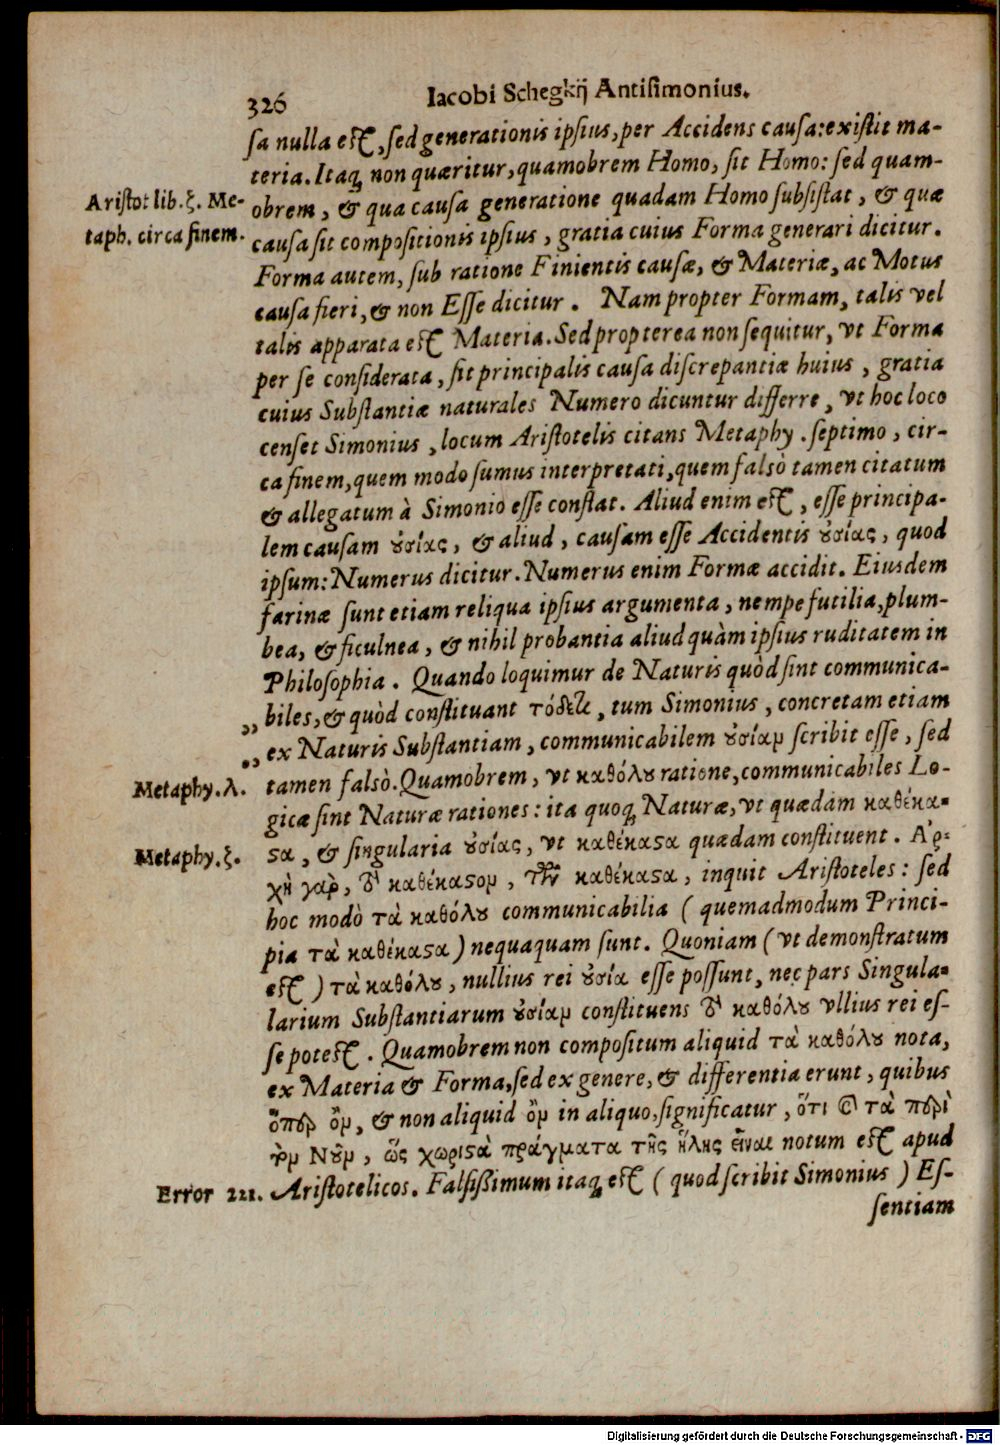 326
Iacobi Schegkij Antisimonius.
sa nulla est, sed generationis ipsius, per Accidens causa: existit ma-
teria. Itaq; non quæritur, quamobrem Homo, sit Homo: sed quam-
Aristot lib. ξ. Me-
obrem, & qua causa generatione quadam Homo subsistat, & quæ
taph. circa finem.
causa sit compositionis ipsius, gratia cuius Forma generari dicitur.
Forma autem, sub ratione Finientis causæ, & Materiæ, ac Motus
causa fieri, & non Esse dicitur. Nam propter Formam, talis vel
talis apparata est Materia. Sed propterea non sequitur, vt Forma
per se considerata, sit principalis causa discrepantiæ huius, gratia
cuius Substantiæ naturales Numero dicuntur differre, vt hoc loco
censet Simonius, locum Aristotelis citans Metaphy. septimo, cir-
ca finem, quem modo sumus interpretati, quem falsò tamen citatum
& allegatum à Simonio esse constat. Aliud enim est, esse principa-
lem causam ȣσίας, & aliud, causam esse Accidentis ȣσίας, quod
ipsum: Numerus dicitur. Numerus enim Formæ accidit. Eiusdem
farinæ sunt etiam reliqua ipsius argumenta, nempe futilia, plum-
bea, & ficulnea, & nihil probantia aliud quàm ipsius ruditatem in
Philosophia. Quando loquimur de Naturis quòd sint communica-
,, biles, & quòd constituant τόδετι, tum Simonius, concretam etiam
,, ex Naturis Substantiam, communicabilem ȣσίαμ scribit esse, sed
Metaphy. λ.
tamen falsò. Quamobrem, vt καθόλȣ ratione, communicabiles Lo-
gicæ sint Naturæ rationes: ita quoq; Naturæ, vt quædam καθέκα-
Metaphy. ξ.
ϛα, & singularia ȣσίας, vt καθέκαϛα quædam constituent. Ἀρ-
χὴ γαρ̀, τὸ καθέκαϛομ, τῶν καθέκαϛα, inquit Aristoteles: sed
hoc modò τὰ καθόλȣ communicabilia (quemadmodum Princi-
pia τὰ καθέκαϛα) nequaquam sunt. Quoniam (vt demonstratum
est) τὰ καθόλȣ, nullius rei ȣσία esse possunt, nec pars Singula-
larium Substantiarum ȣσίαμ constituens τὸ καθόλȣ vllius rei es-
se potest. Quamobrem non compositum aliquid τὰ καθόλȣ nota,
ex Materia & Forma, sed ex genere, & differentia erunt, quibus
ὅπερ ὂμ, & non aliquid ὂμ in aliquo, significatur, ὅτι δὲ τὰ περὶ
τὸμ Νȣ͂μ, ὥς χωριϛὰ πράγματα τῆς ὕλης εἶναι notum est apud
Error 221.
Aristotelicos. Falsissimum itaq; est (quod scribit Simonius) Es-
sentiam
Digitalisierung gefördert durch die Deutsche Forschungsgemeinschaft - DFG